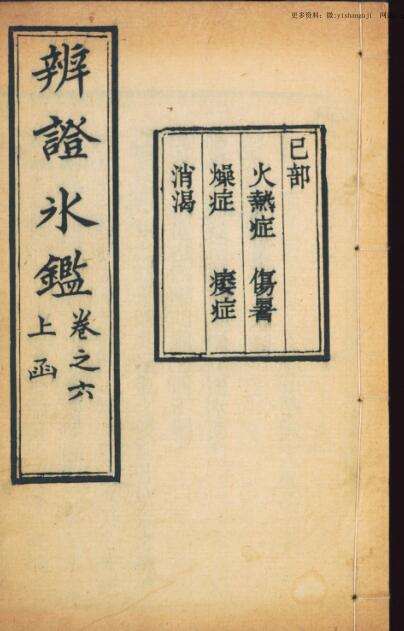 更多资料：微:yishanguji
辨證氷鑑
卷之六
上函
巳部
火熱症 傷暑
燥症 痿症
消渴